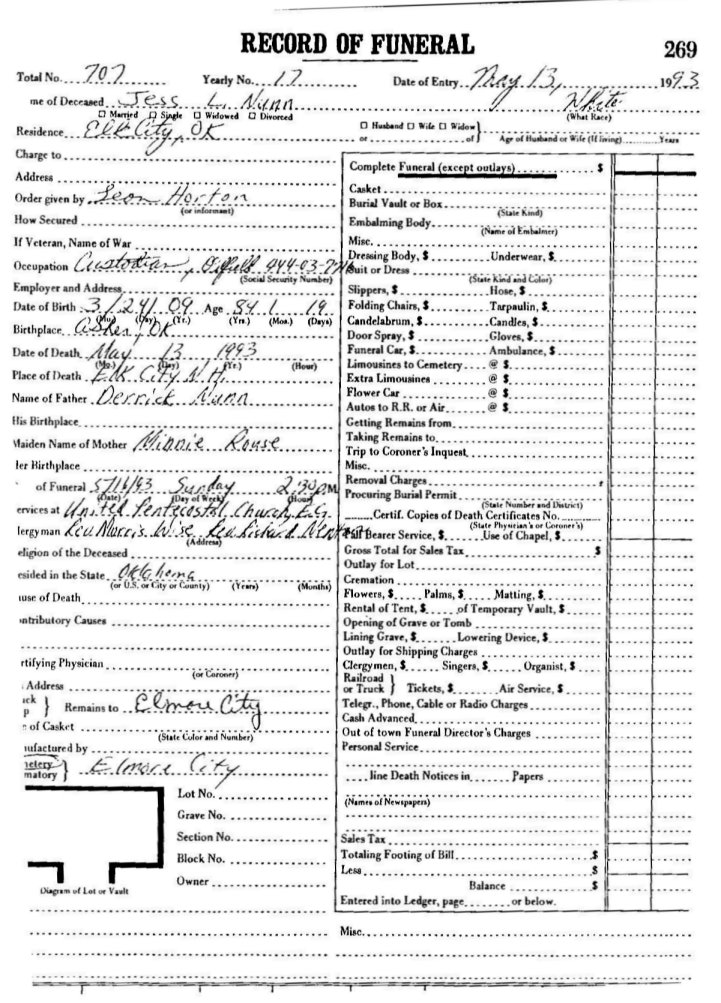 RECORD OF FUNERAL
269
Total No. 707 Yearly No. 17 Date of Entry May 13, 1993
me of Deceased Jess L. Nunn White
☐ Married ☐ Single ☐ Widowed ☐ Divorced (What Race)
Residence Elk City, OK
☐ Husband ☐ Wife ☐ Widow } or of } Age of Husband or Wife (If living) Years
Charge to
Address
Order given by Leon Horton
(or informant)
How Secured
If Veteran, Name of War
Occupation Custodian, Oilfield
(Social Security Number)
Employer and Address
Date of Birth 3/24/09 Age 84 1 19
(Mo.) (Day) (Yr.) (Yrs.) (Mos.) (Days)
Birthplace Asher, OK
Date of Death May 13 1993
(Mo.) (Day) (Yr.) (Hour)
Place of Death Elk City N.H.
Name of Father Derrick Nunn
His Birthplace
Maiden Name of Mother Minnie Rouse
Her Birthplace
of Funeral 5/16/93 Sunday 2:30 P.M.
(Date) (Day of Week) (Hour)
ervices at United Pentecostal Church, E.C.
lergyman Rev Morris Wise, Rev Richard
(Address)
eligion of the Deceased
esided in the State Oklahoma
(or U.S. or City or County) (Years) (Months)
use of Death
ntributory Causes
rtifying Physician
(or Coroner)
Address
ck } p } Remains to Elmore City
of Casket
(State Color and Number)
ufactured by
metery } matory } Elmore City
Lot No.
Grave No.
Section No.
Block No.
Owner
Diagram of Lot or Vault
Complete Funeral (except outlays) $
Casket
Burial Vault or Box
(State Kind)
Embalming Body
(Name of Embalmer)
Misc.
Dressing Body, $ Underwear, $
Suit or Dress
(State Kind and Color)
Slippers, $ Hose, $
Folding Chairs, $ Tarpaulin, $
Candelabrum, $ Candles, $
Door Spray, $ Gloves, $
Funeral Car, $ Ambulance, $
Limousines to Cemetery @ $
Extra Limousines @ $
Flower Car @ $
Autos to R.R. or Air @ $
Getting Remains from
Taking Remains to
Trip to Coroner's Inquest
Misc.
Removal Charges
Procuring Burial Permit
(State Number and District)
Certif. Copies of Death Certificates No.
(State Physician's or Coroner's)
Pall Bearer Service, $ Use of Chapel, $
Gross Total for Sales Tax $
Outlay for Lot
Cremation
Flowers, $ Palms, $ Matting, $
Rental of Tent, $ of Temporary Vault, $
Opening of Grave or Tomb
Lining Grave, $ Lowering Device, $
Outlay for Shipping Charges
Clergymen, $ Singers, $ Organist, $
Railroad or Truck } Tickets, $ Air Service, $
Telegr., Phone, Cable or Radio Charges
Cash Advanced
Out of town Funeral Director's Charges
Personal Service
line Death Notices in Papers
(Names of Newspapers)
Sales Tax
Totaling Footing of Bill $
Less $
Balance $
Entered into Ledger, page or below.
Misc.